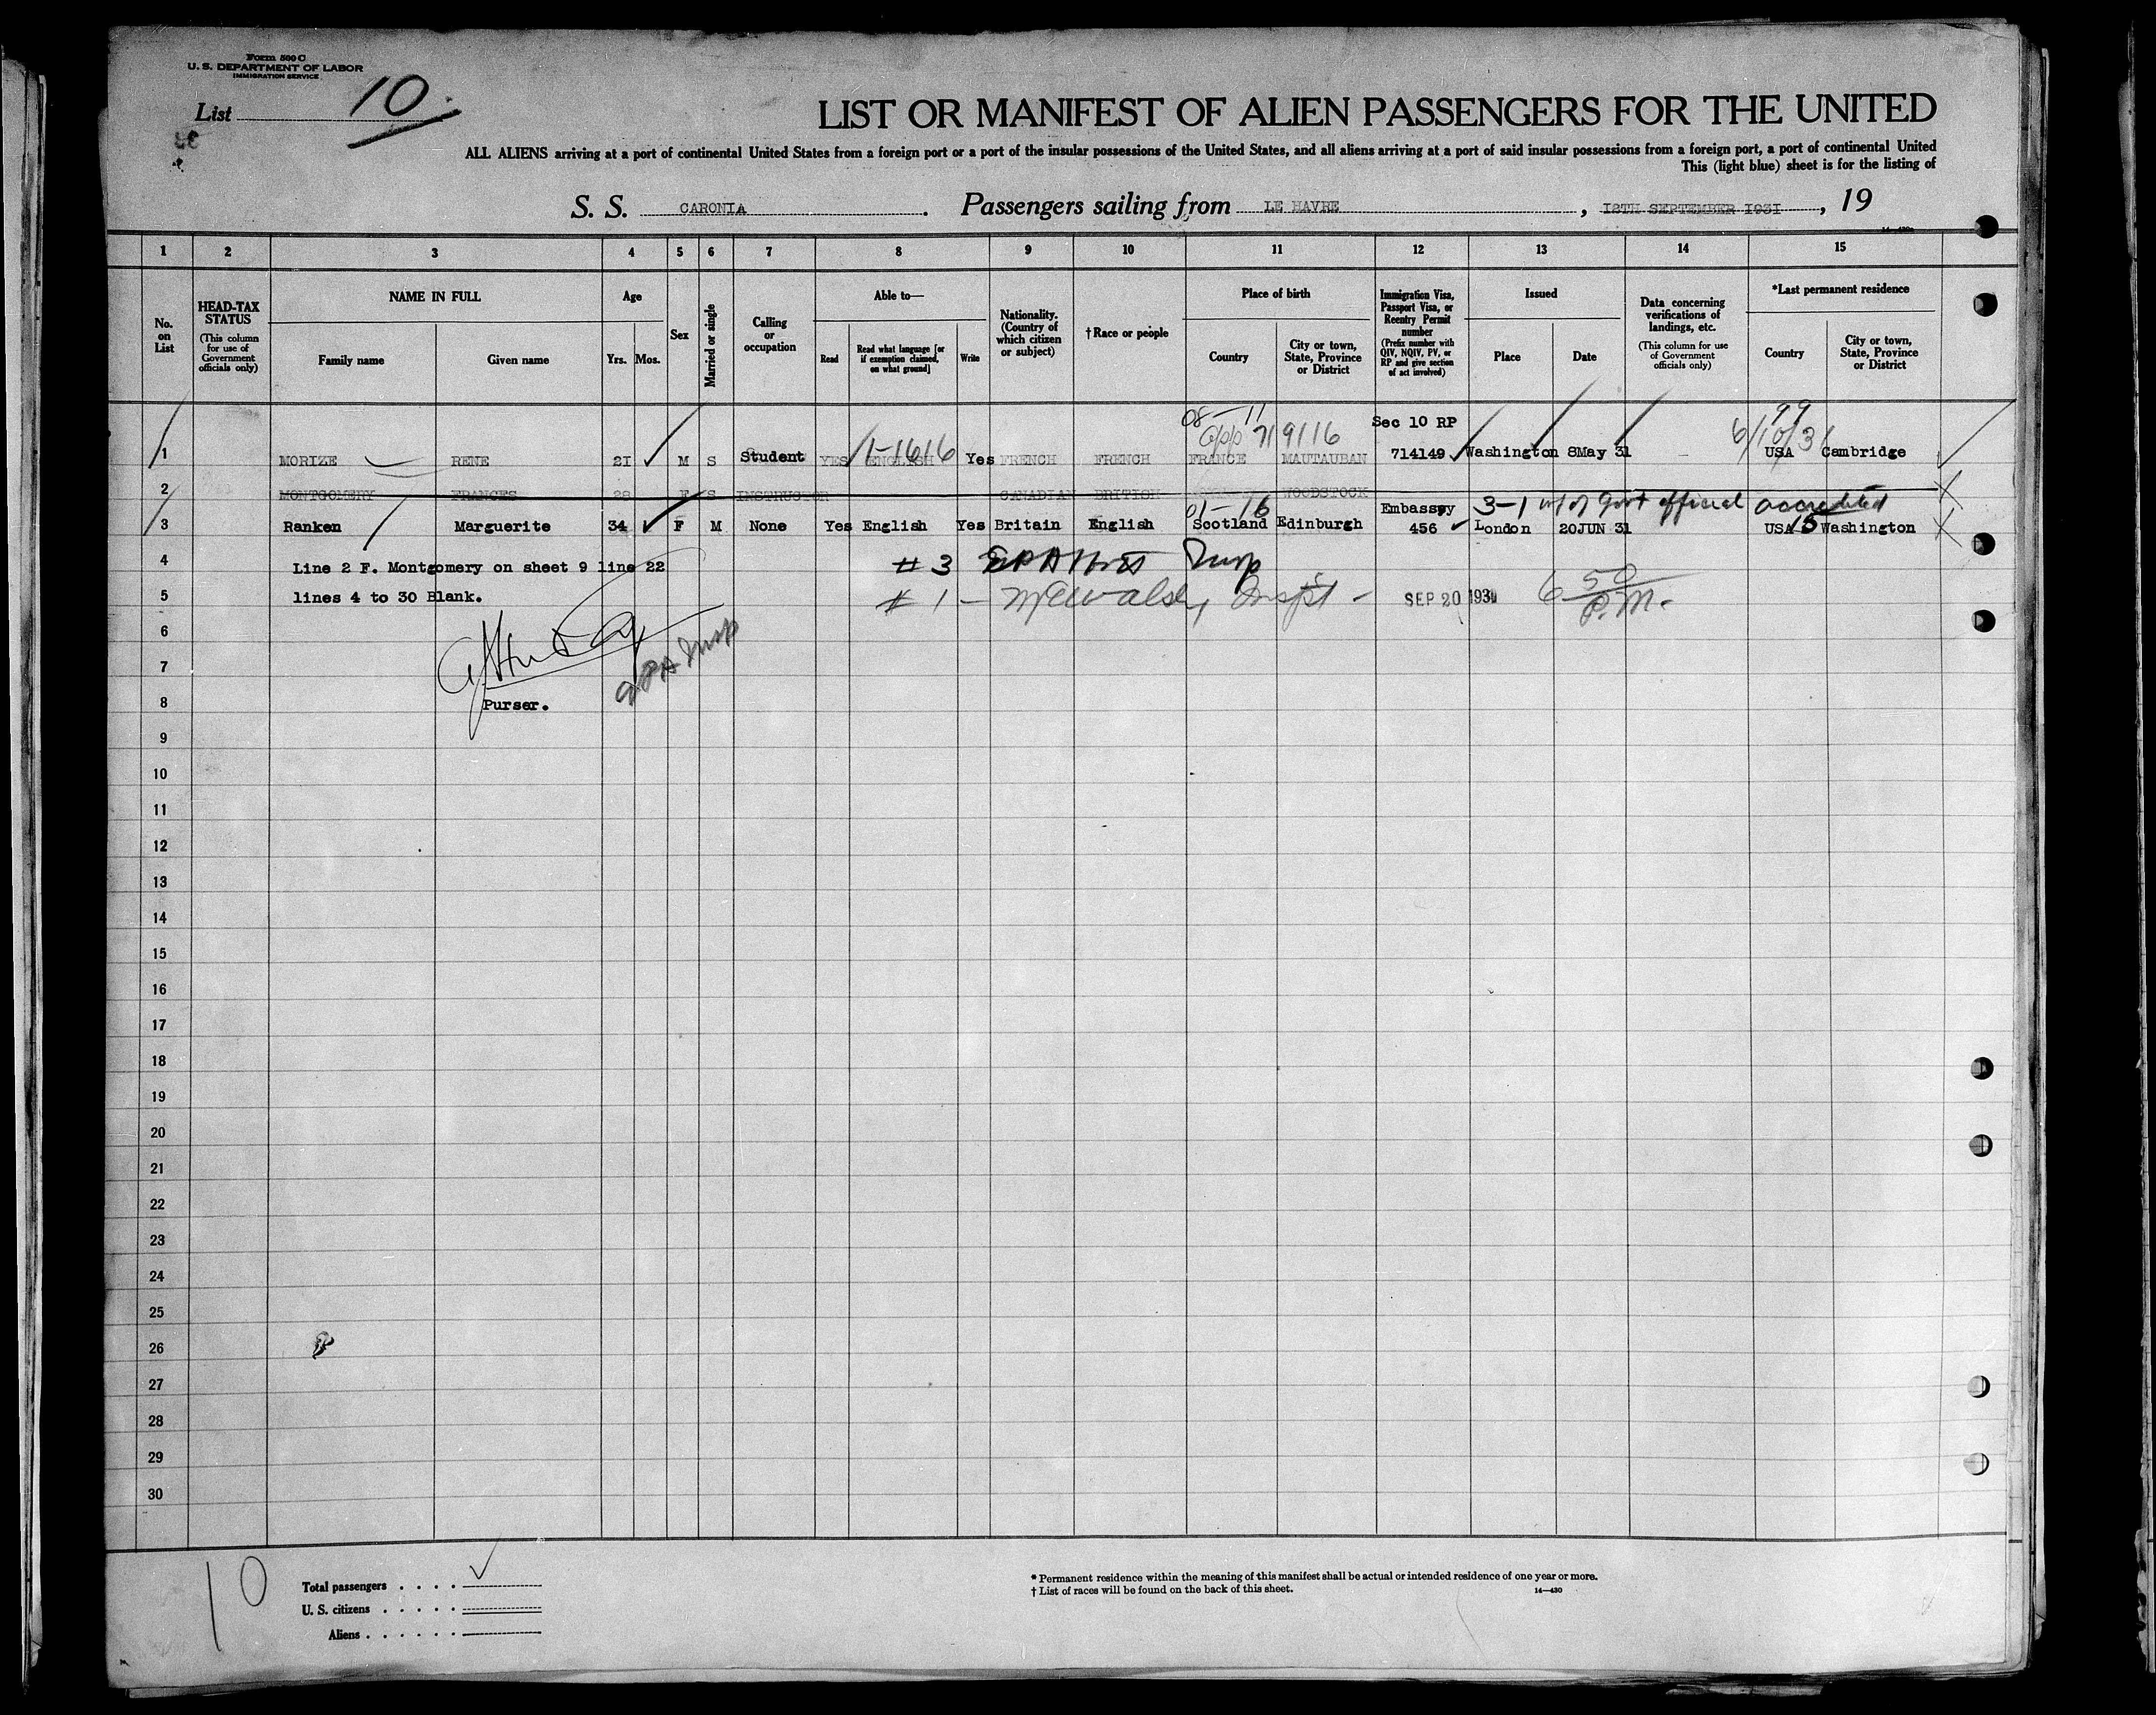 Form 500 C
U. S. DEPARTMENT OF LABOR
IMMIGRATION SERVICE
List 10
LIST OR MANIFEST OF ALIEN PASSENGERS FOR THE UNITED
ALL ALIENS arriving at a port of continental United States from a foreign port or a port of the insular possessions of the United States, and all aliens arriving at a port of said insular possessions from a foreign port, a port of continental United
This (light blue) sheet is for the listing of
S. S. CARONIA. Passengers sailing from LE HAVRE, 12TH SEPTEMBER 1931, 19
1 2 3 4 5 6 7 8 9 10 11 12 13 14 15
No. on List
HEAD-TAX STATUS
(This column for use of Government officials only)
NAME IN FULL
Family name Given name
Age
Yrs. Mos.
Sex
Married or single
Calling or occupation
Able to—
Read Read what language [or if exemption claimed, on what ground] Write
Nationality. (Country of which citizen or subject)
† Race or people
Place of birth
Country City or town, State, Province or District
Immigration Visa, Passport Visa, or Reentry Permit number
(Prefix number with QIV, NQIV, PV, or RP and give section of act involved)
Issued
Place Date
Data concerning verifications of landings, etc.
(This column for use of Government officials only)
*Last permanent residence
Country City or town, State, Province or District
08-11 Sec 10 RP 99
App 719116 6/10/31
1 MORIZE RENE 21 M S Student YES 1-1616 ENGLISH Yes FRENCH FRENCH FRANCE MAUTAUBAN 714149 Washington 8May 31 USA Cambridge
2 MONTGOMERY FRANCES 28 F S INSTRUCTOR CANADIAN BRITISH WOODSTOCK
01-16 Embassy 3-1 Govt official accredited
3 Ranken Marguerite 34 F M None Yes English Yes Britain English Scotland Edinburgh 456 London 20JUN 31 USA 15 Washington
4 Line 2 F. Montgomery on sheet 9 line 22 # 3 Insp
5 lines 4 to 30 Blank. # 1 - Inspt - SEP 20 1931 6 50 P.M.
6
7 Insp
8 Purser.
9
10
11
12
13
14
15
16
17
18
19
20
21
22
23
24
25
26
27
28
29
30
10
Total passengers
U. S. citizens
Aliens
* Permanent residence within the meaning of this manifest shall be actual or intended residence of one year or more.
† List of races will be found on the back of this sheet. 14—430